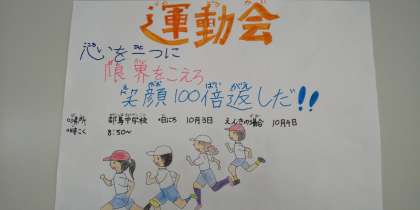 運動会
心を一つに
限界をこえろ
笑顔100倍返しだ!!
場所 都島中学校 日にち 10月3日 えんきの場合 10月4日
時こく 8:50〜